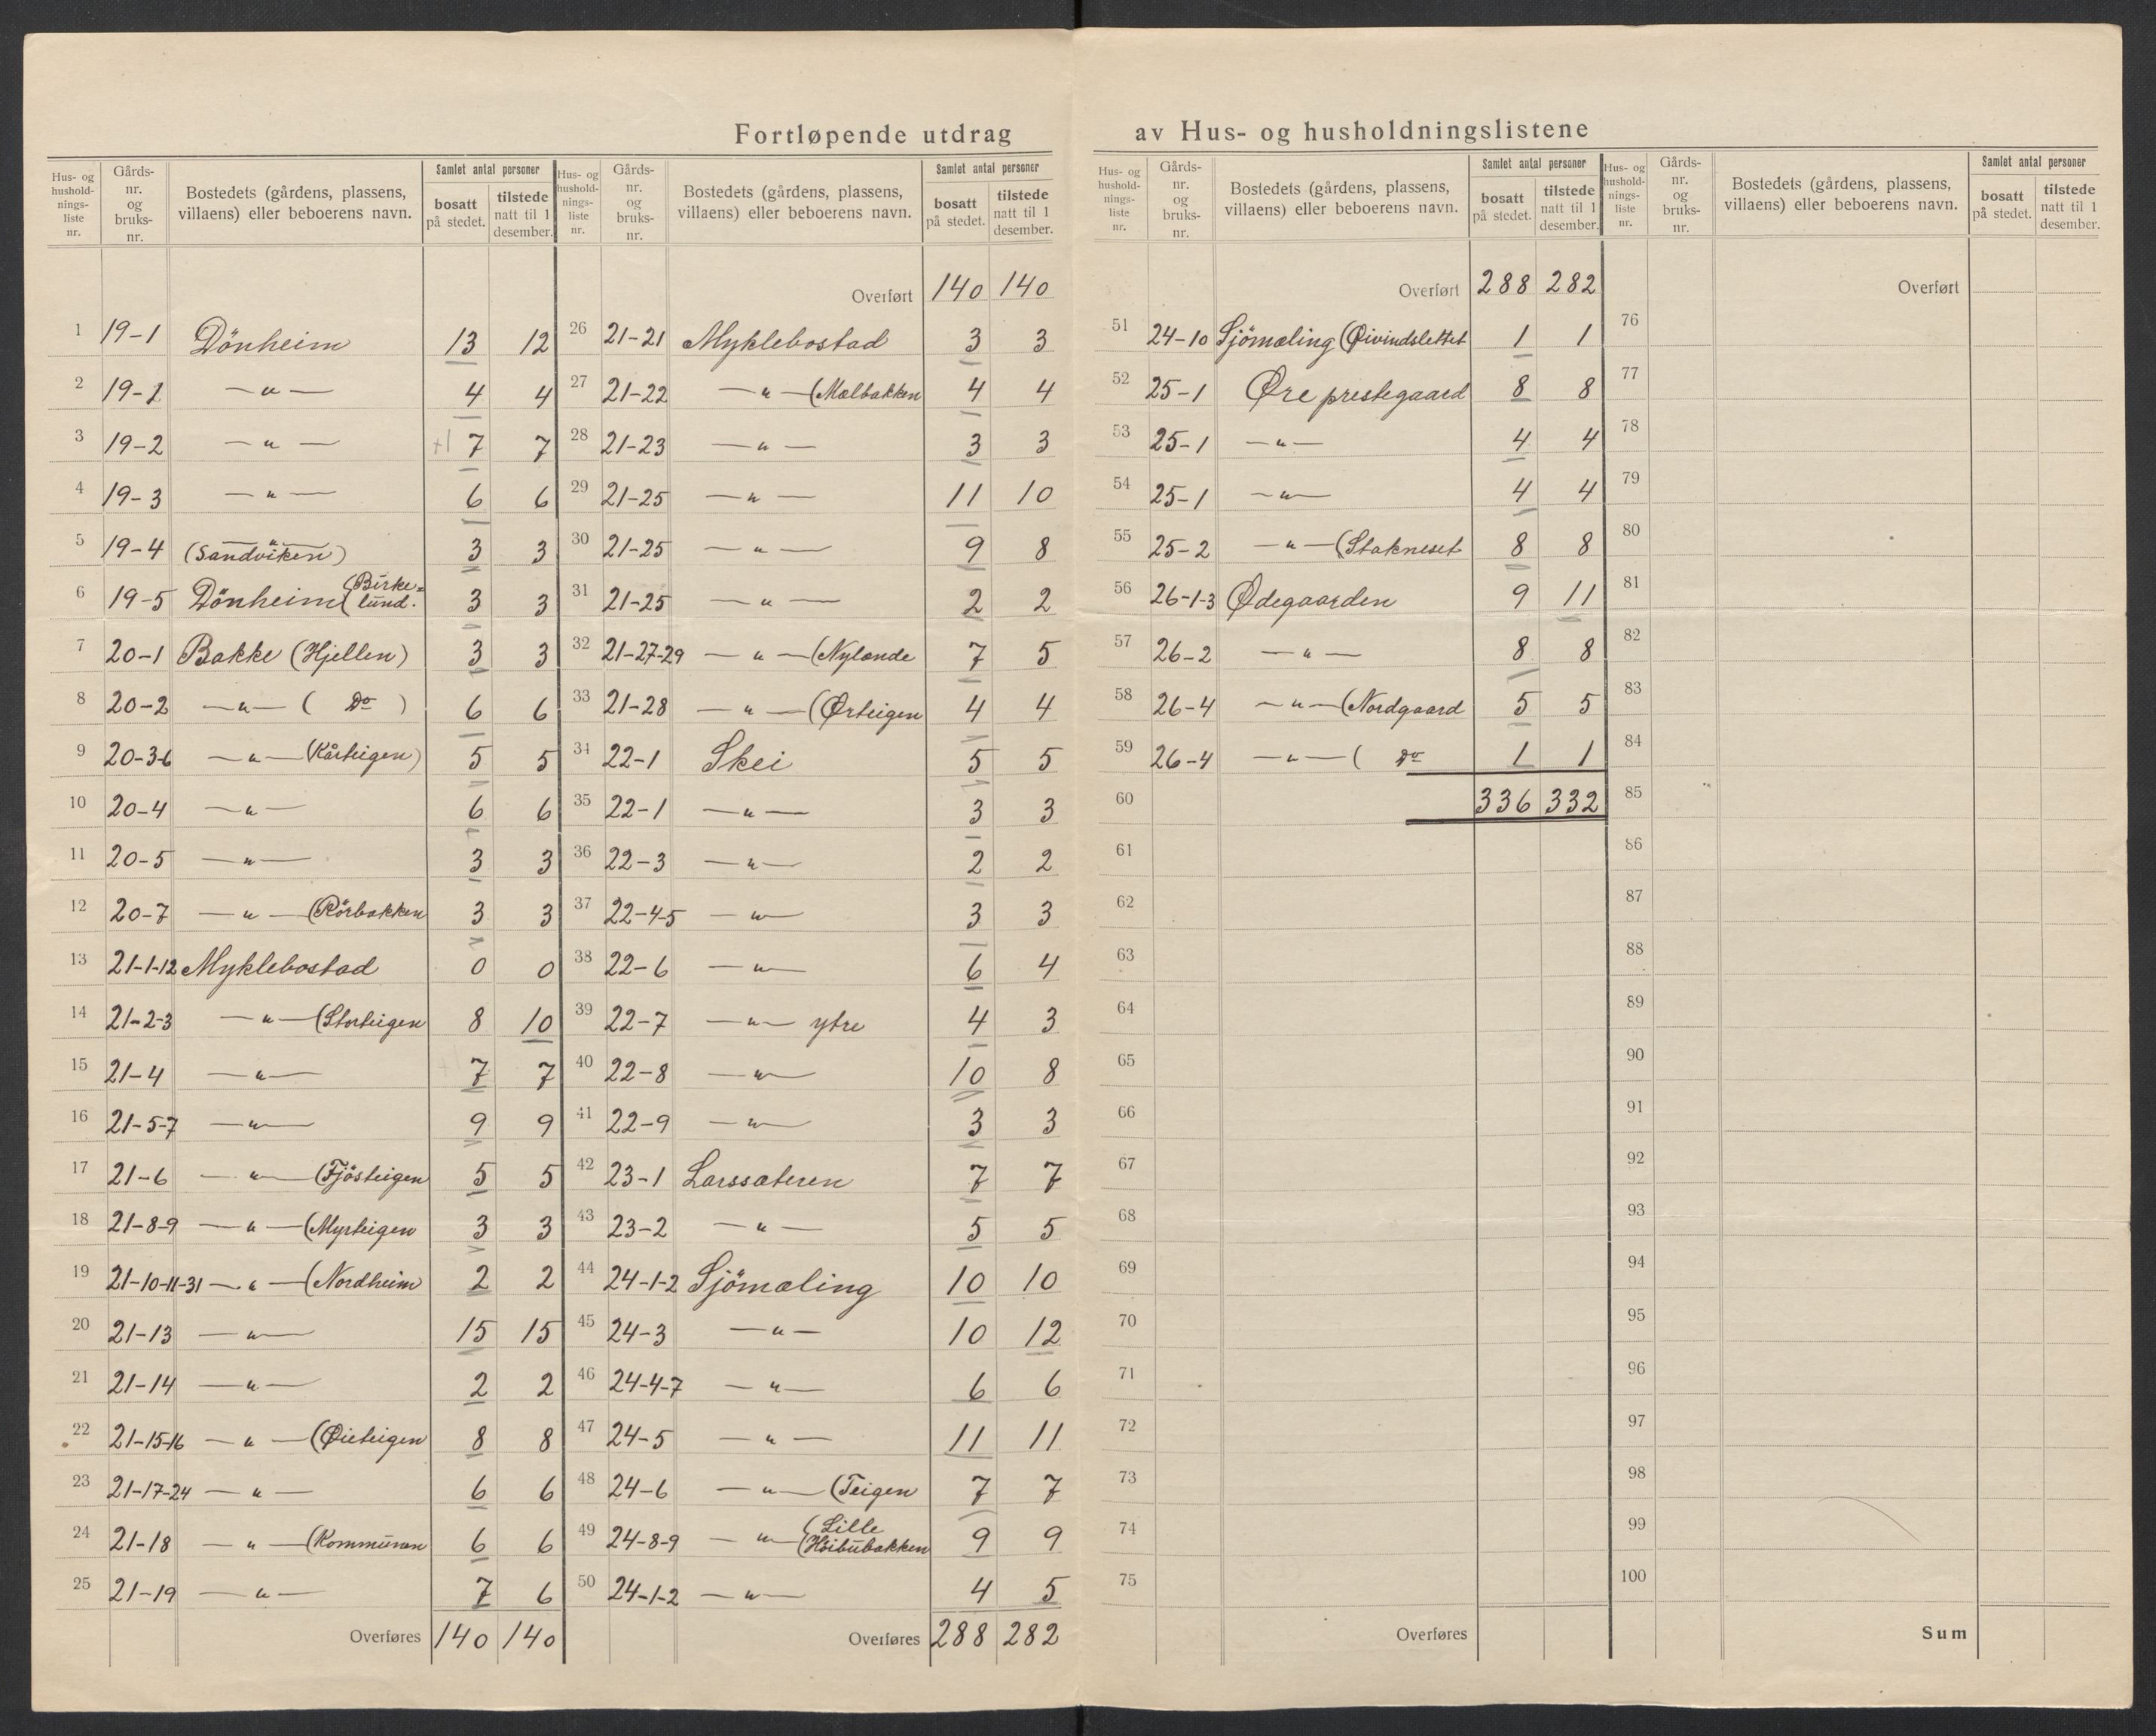 Fortløpende utdrag av Hus- og husholdningslistene
Hus- og hushold-nings-liste nr. | Gårds-nr. og bruks-nr. | Bostedets (gårdens, plassens, villaens) eller beboerens navn. | Samlet antal personer | bosatt på stedet. | tilstede natt til 1 desember.
1 19-1 Dönheim 13 12
2 19-1 —„— 4 4
3 19-2 —„— +1 7 7
4 19-3 —„— 6 6
5 19-4 —„— (Sandviken) 3 3
6 19-5 Dönheim (Birke=lund. 3 3
7 20-1 Bakke (Hjellen) 3 3
8 20-2 —„— ( Do ) 6 6
9 20-3-6 —„— (Kårteigen) 5 5
10 20-4 —„— 6 6
11 20-5 —„— 3 3
12 20-7 —„— (Rörbakken 3 3
13 21-1-12 Myklebostad 0 0
14 21-2-3 —„— (Storteigen 8 10
15 21-4 —„— 7 7
16 21-5-7 —„— 9 9
17 21-6 —„— (Fjösteigen 5 5
18 21-8-9 —„— (Myrteigen 3 3
19 21-10-11-31 —„— (Nordheim 2 2
20 21-13 —„— 15 15
21 21-14 —„— 2 2
22 21-15-16 —„— (Øieteigen 8 8
23 21-17-24 —„— 6 6
24 21-18 —„— (Kommunen 6 6
25 21-19 —„— 7 6
Overføres 140 140
Hus- og hushold-nings-liste nr. | Gårds-nr. og bruks-nr. | Bostedets (gårdens, plassens, villaens) eller beboerens navn. | Samlet antal personer | bosatt på stedet. | tilstede natt til 1 desember.
Overført 140 140
26 21-21 Myklebostad 3 3
27 21-22 —„— (Melbakken 4 4
28 21-23 —„— 3 3
29 21-25 —„— 11 10
30 21-25 —„— 9 8
31 21-25 —„— 2 2
32 21-27-29 —„— (Nylænde 7 5
33 21-28 —„— (Ørteigen 4 4
34 22-1 Skei 5 5
35 22-1 —„— 3 3
36 22-3 —„— 2 2
37 22-4-5 —„— 3 3
38 22-6 —„— 6 4
39 22-7 —„— ytre 4 3
40 22-8 —„— 10 8
41 22-9 —„— 3 3
42 23-1 Larssæteren 7 7
43 23-2 —„— 5 5
44 24-1-2 Sjömæling 10 10
45 24-3 —„— 10 12
46 24-4-7 —„— 6 6
47 24-5 —„— 11 11
48 24-6 —„— (Teigen 7 7
49 24-8-9 —„— (Lille (Höibubakken 9 9
50 24-1-2 —„— 4 5
Overføres 288 282
Hus- og hushold-nings-liste nr. | Gårds-nr. og bruks-nr. | Bostedets (gårdens, plassens, villaens) eller beboerens navn. | Samlet antal personer | bosatt på stedet. | tilstede natt til 1 desember.
Overført 288 282
51 24-10 Sjömæling (Øivindslettet 1 1
52 25-1 Øre prestegaard 8 8
53 25-1 —„— 4 4
54 25-1 —„— 4 4
55 25-2 —„— (Stakneset 8 8
56 26-1-3 Ødegaarden 9 11
57 26-2 —„— 8 8
58 26-4 —„— (Nordgaard 5 5
59 26-4 —„— ( Do 1 1
60 336 332
61
62
63
64
65
66
67
68
69
70
71
72
73
74
75
Overføres
Hus- og hushold-nings-liste nr. | Gårds-nr. og bruks-nr. | Bostedets (gårdens, plassens, villaens) eller beboerens navn. | Samlet antal personer | bosatt på stedet. | tilstede natt til 1 desember.
Overført
76
77
78
79
80
81
82
83
84
85
86
87
88
89
90
91
92
93
94
95
96
97
98
99
100
Sum